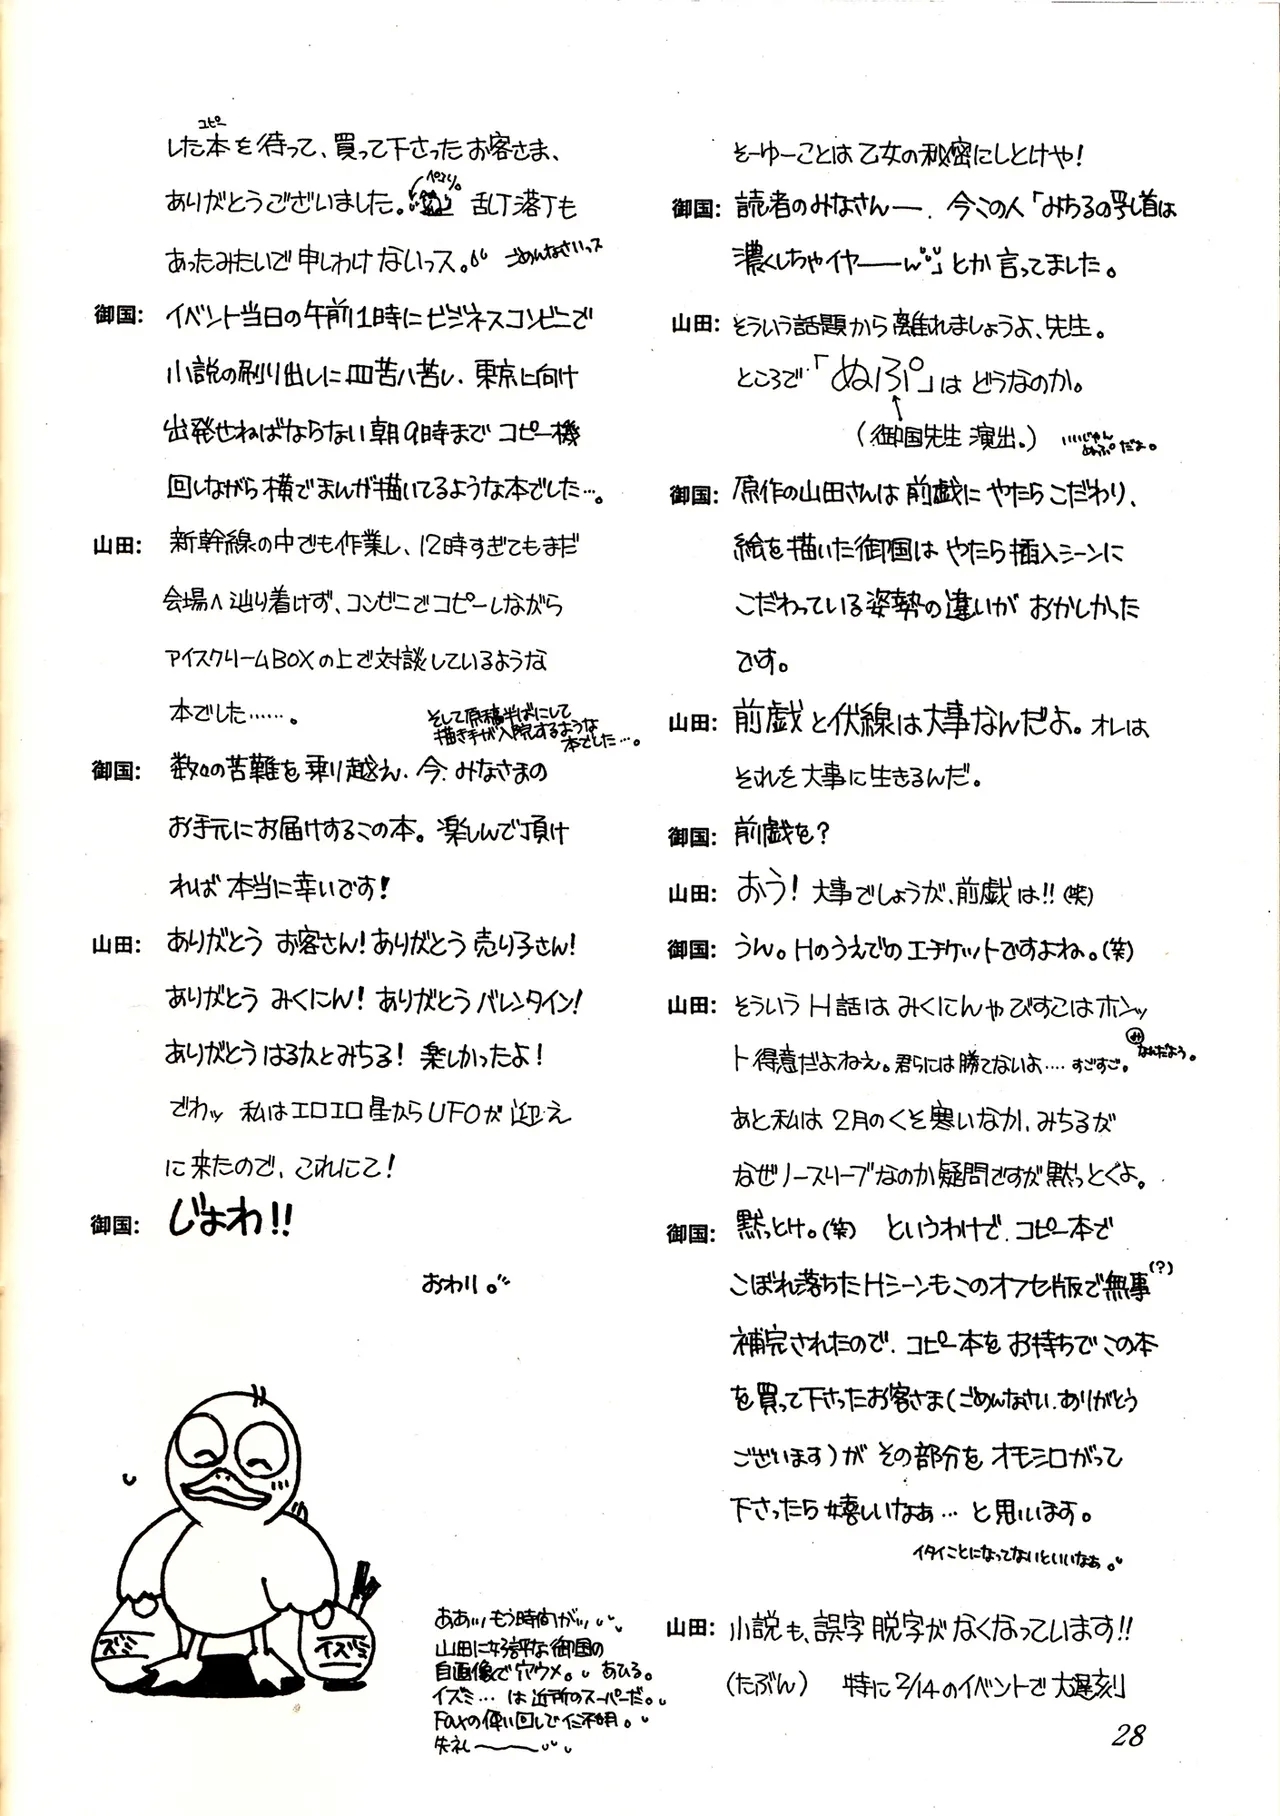 そーゆーことは乙女の秘密にしとけや!
御国: 読者のみなさんー、今この人「みちるの乳首は
濃くしちゃイヤーーん」とか言ってました。
山田: そういう話題から離れましょうよ、先生。
ところで「ぬぷ」はどうなのか。
(御国先生 演出。) いいじゃん
ぬぷだよ。
御国: 原作の山田さんは前戯にやたらこだわり、
絵を描いた御国はやたら挿入シーンに
こだわっている姿勢の違いがおかしかった
です。
山田: 前戯と伏線は大事なんだよ。オレは
それを大事に生きるんだ。
御国: 前戯を?
山田: おう! 大事でしょうが、前戯は!!(笑)
御国: うん。Hのうえでのエチケットですよね。(笑)
山田: そういうH話はみくにんやびすこはホンッ
ト得意だよねえ。君らには勝てないよ‥‥すごすご。
み なんだよう。
あと私は2月のくそ寒いなか、みちるが
なぜノースリーブなのか疑問ですが黙っとくよ。
御国: 黙っとけ。(笑) というわけで、コピー本で
こぼれ落ちたHシーンもこのオフセ版で無事(?)
補完されたので、コピー本をお持ちでこの本
を買って下さったお客さま(ごめんなさい、ありがとう
ございます)がその部分をオモシロがって
下さったら嬉しいなぁ…と思います。
イタイことになってないといいなぁ。
山田: 小説も、誤字脱字がなくなっています!!
(たぶん) 特に2/14のイベントで大遅刻
コピー
した本を待って、買って下さったお客さま、
ありがとうございました。ペコリ。乱丁落丁も
あったみたいで申しわけないっス。ごめんなさいっス
御国: イベント当日の午前1時にビジネスコンビニで
小説の刷り出しに四苦八苦し、東京に向け
出発せねばならない朝9時までコピー機
回しながら横でまんが描いてるような本でした…。
山田: 新幹線の中でも作業し、12時すぎてもまだ
会場へ辿り着けず、コンビニでコピーしながら
アイスクリームBOXの上で対談しているような
本でした……。
そして原稿半ばにして
描き手が入院するような
本でした…。
御国: 数々の苦難を乗り越え、今、みなさまの
お手元にお届けするこの本。楽しんで頂け
れば本当に幸いです!
山田: ありがとう お客さん! ありがとう 売り子さん!
ありがとう みくにん! ありがとうバレンタイン!
ありがとうはるかとみちる! 楽しかったよ!
でわッ 私はエロエロ星からUFOが迎え
に来たので、これにて!
御国: じょわ!!
おわり。
イズミ
イズミ
ああッもう時間がッ
山田に好評な御国の
自画像で穴ウメ。あひる。
イズミ…は近所のスーパーだ。
Faxの使い回しで不明。
失礼ーーー
28